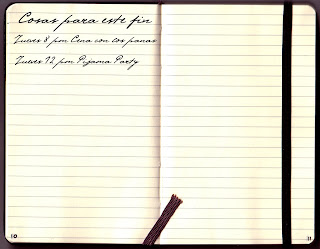 Cosas para este fin
Jueves 8 pm Cena con los panas
Jueves 12 pm Pijama Party
10
11